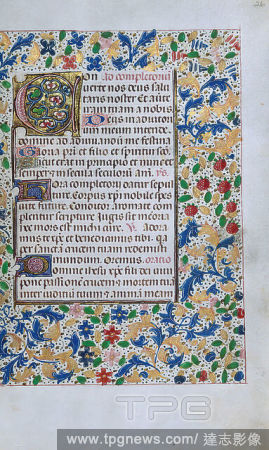 Con Ad completoriu
uerte nos deus salu
taris noster Et auerte
iram tuam a nobis
Deus in adiutori
um meum intende
domine ad adiuuandu me festina
Gloria pri et filio et spiritui sco
Sicut erat in principio et nunc et
semper et in secula seculoru am. ps.
Hora completorij datur sepul
ture Corpus xpi nobile spes
vite future Conditur aromate com
plentur scripture Jugis sit memoria
hec mors est michi cure. V. Adora
mus te xpe et benedicimus tibi. qa
per sanctam crucem tuam redemisti
mundum. Oremus. oratio
Domine ihesu xpe fili dei viui
pone passionem crucem et mortem
inter iudiciu tuum et animã meam
TPG
www.tpgnews.com/達志影像